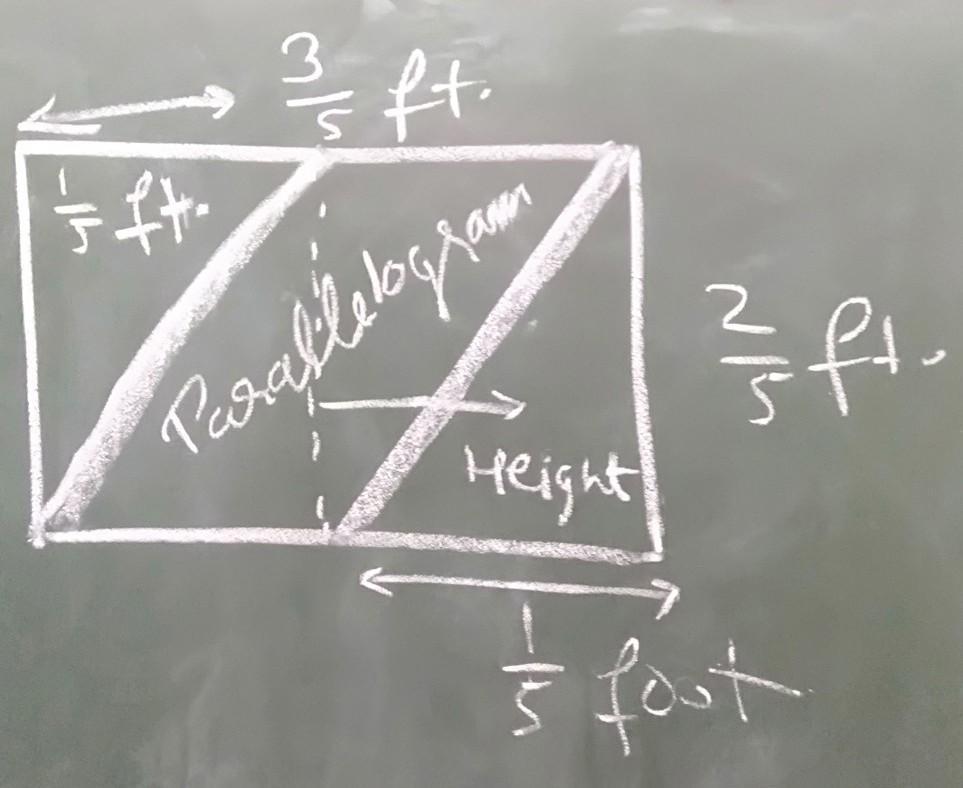 3/5 ft.
1/5 ft.
Parallelogram
2/5 ft.
Height
1/5 foot